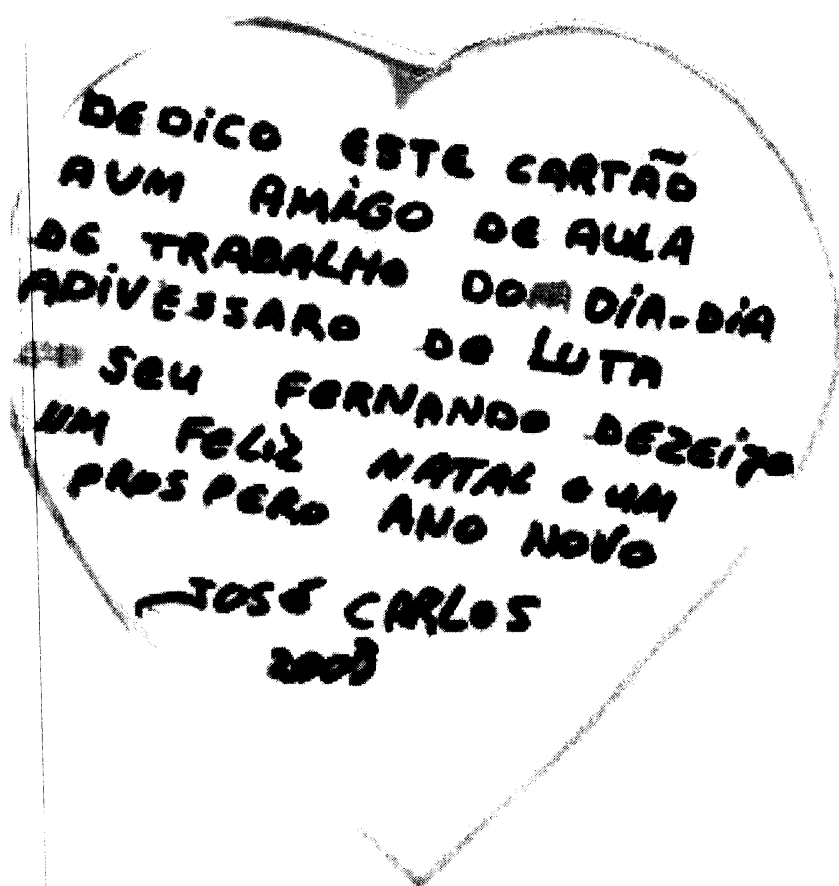 DEDICO ESTE CARTÃO
AUM AMIGO DE AULA
DE TRABALHO DO DIA-DIA
ADIVESSARO DE LUTA
SEU FERNANDO DEZEIJO
UM FELIZ NATAL E UM
PROSPERO ANO NOVO
JOSÉ CARLOS